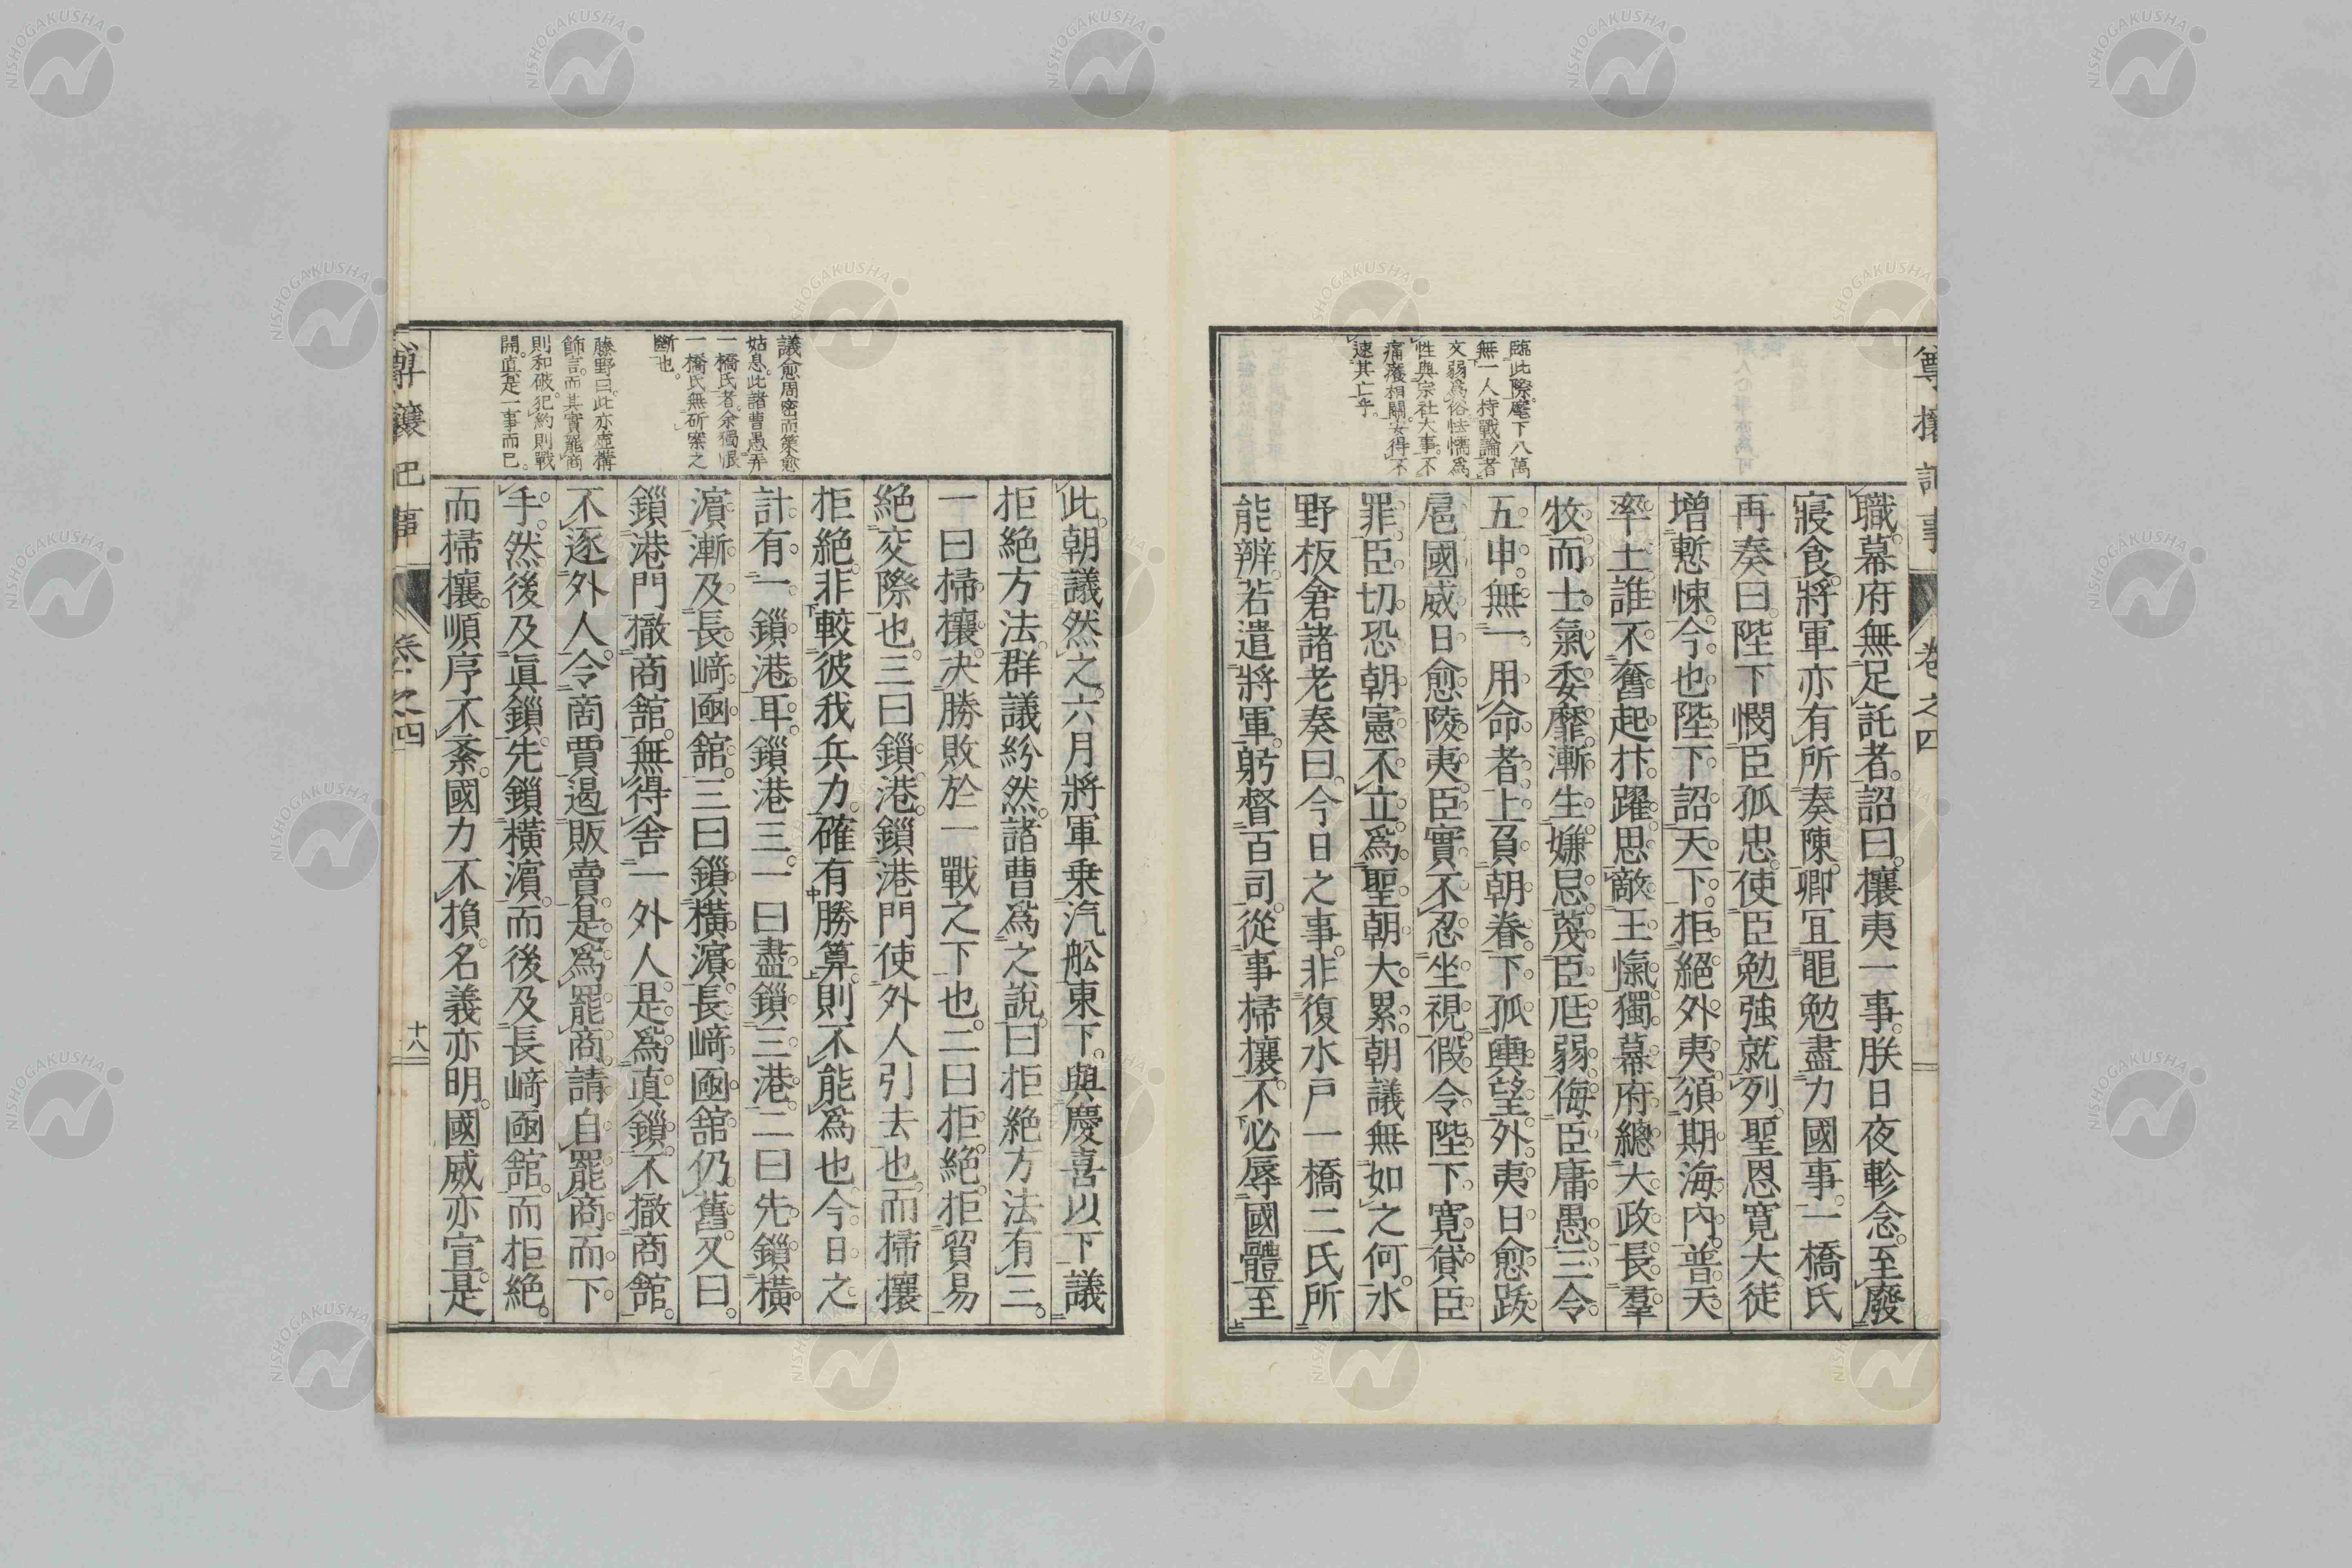 尊攘記事
卷之四
臨此際麾下八萬
無一人持戰論者
文弱爲俗怯懦爲
性與宗社大事不
痛癢相關安得不
速其亡乎
職。幕府無足託者。詔曰。攘夷一事。朕日夜軫念。至廢
寢食。將軍亦有所奏陳。卿宜黽勉盡力國事。一橋氏
再奏曰。陛下憫臣孤忠。使臣勉強就列。聖恩寬大。徒
增慙悚。今也陛下詔天下。拒絕外夷。須期海內普天
率土誰不奮起抃躍思敵王愾。獨幕府總大政長羣
牧。而士氣委靡。漸生嫌忌。蔑臣尫弱。侮臣庸愚。三令
五申。無一用命者。上負朝眷。下孤輿望。外夷日愈跋
扈。國威日愈陵夷。臣實不忍坐視。假令陛下寬貸臣
罪。臣切恐朝憲不立。爲聖朝大累。朝議無如之何。水
野板倉諸老奏曰。今日之事。非復水戶一橋二氏所
能辨。若遣將軍。躬督百司。從事掃攘。不必辱國體至
議愈周密而策愈
姑息。此諸曹愚弄
一橋氏者。余獨恨
一橋氏無斫案之
斷也。
藤野曰。此亦虛搆
飾言。而其實罷商
則和破。犯約則戰
開。直是一事而已。
此。朝議然之。六月將軍乗汽舩東下。與慶喜以下議
拒絕方法。群議紛然。諸曹爲之說。曰拒絕方法有三。
一曰掃攘。決勝敗於一戰之下也。二曰拒絕。拒貿易
絕交際也。三曰鎖港。鎖港門使外人引去也。而掃攘
拒絕。非較彼我兵力。確有勝算。則不能爲也。今日之
計。有一鎖港耳。鎖港三。一曰盡鎖三港。二曰先鎖橫
濵。漸及長﨑凾舘。三曰鎖橫濵。長﨑凾舘仍舊。又曰。
鎖港門撤商舘。無得舎一外人。是爲眞鎖。不撤商舘。
不逐外人。令商賈遏販賣。是爲罷商。請自罷商而下
手。然後及眞鎖。先鎖橫濵。而後及長﨑凾舘。而拒絕。
而掃攘。順序不紊。國力不損。名義亦明。國威亦宣。是
尊攘記事
卷之四
十八
NISHOGAKUSHA